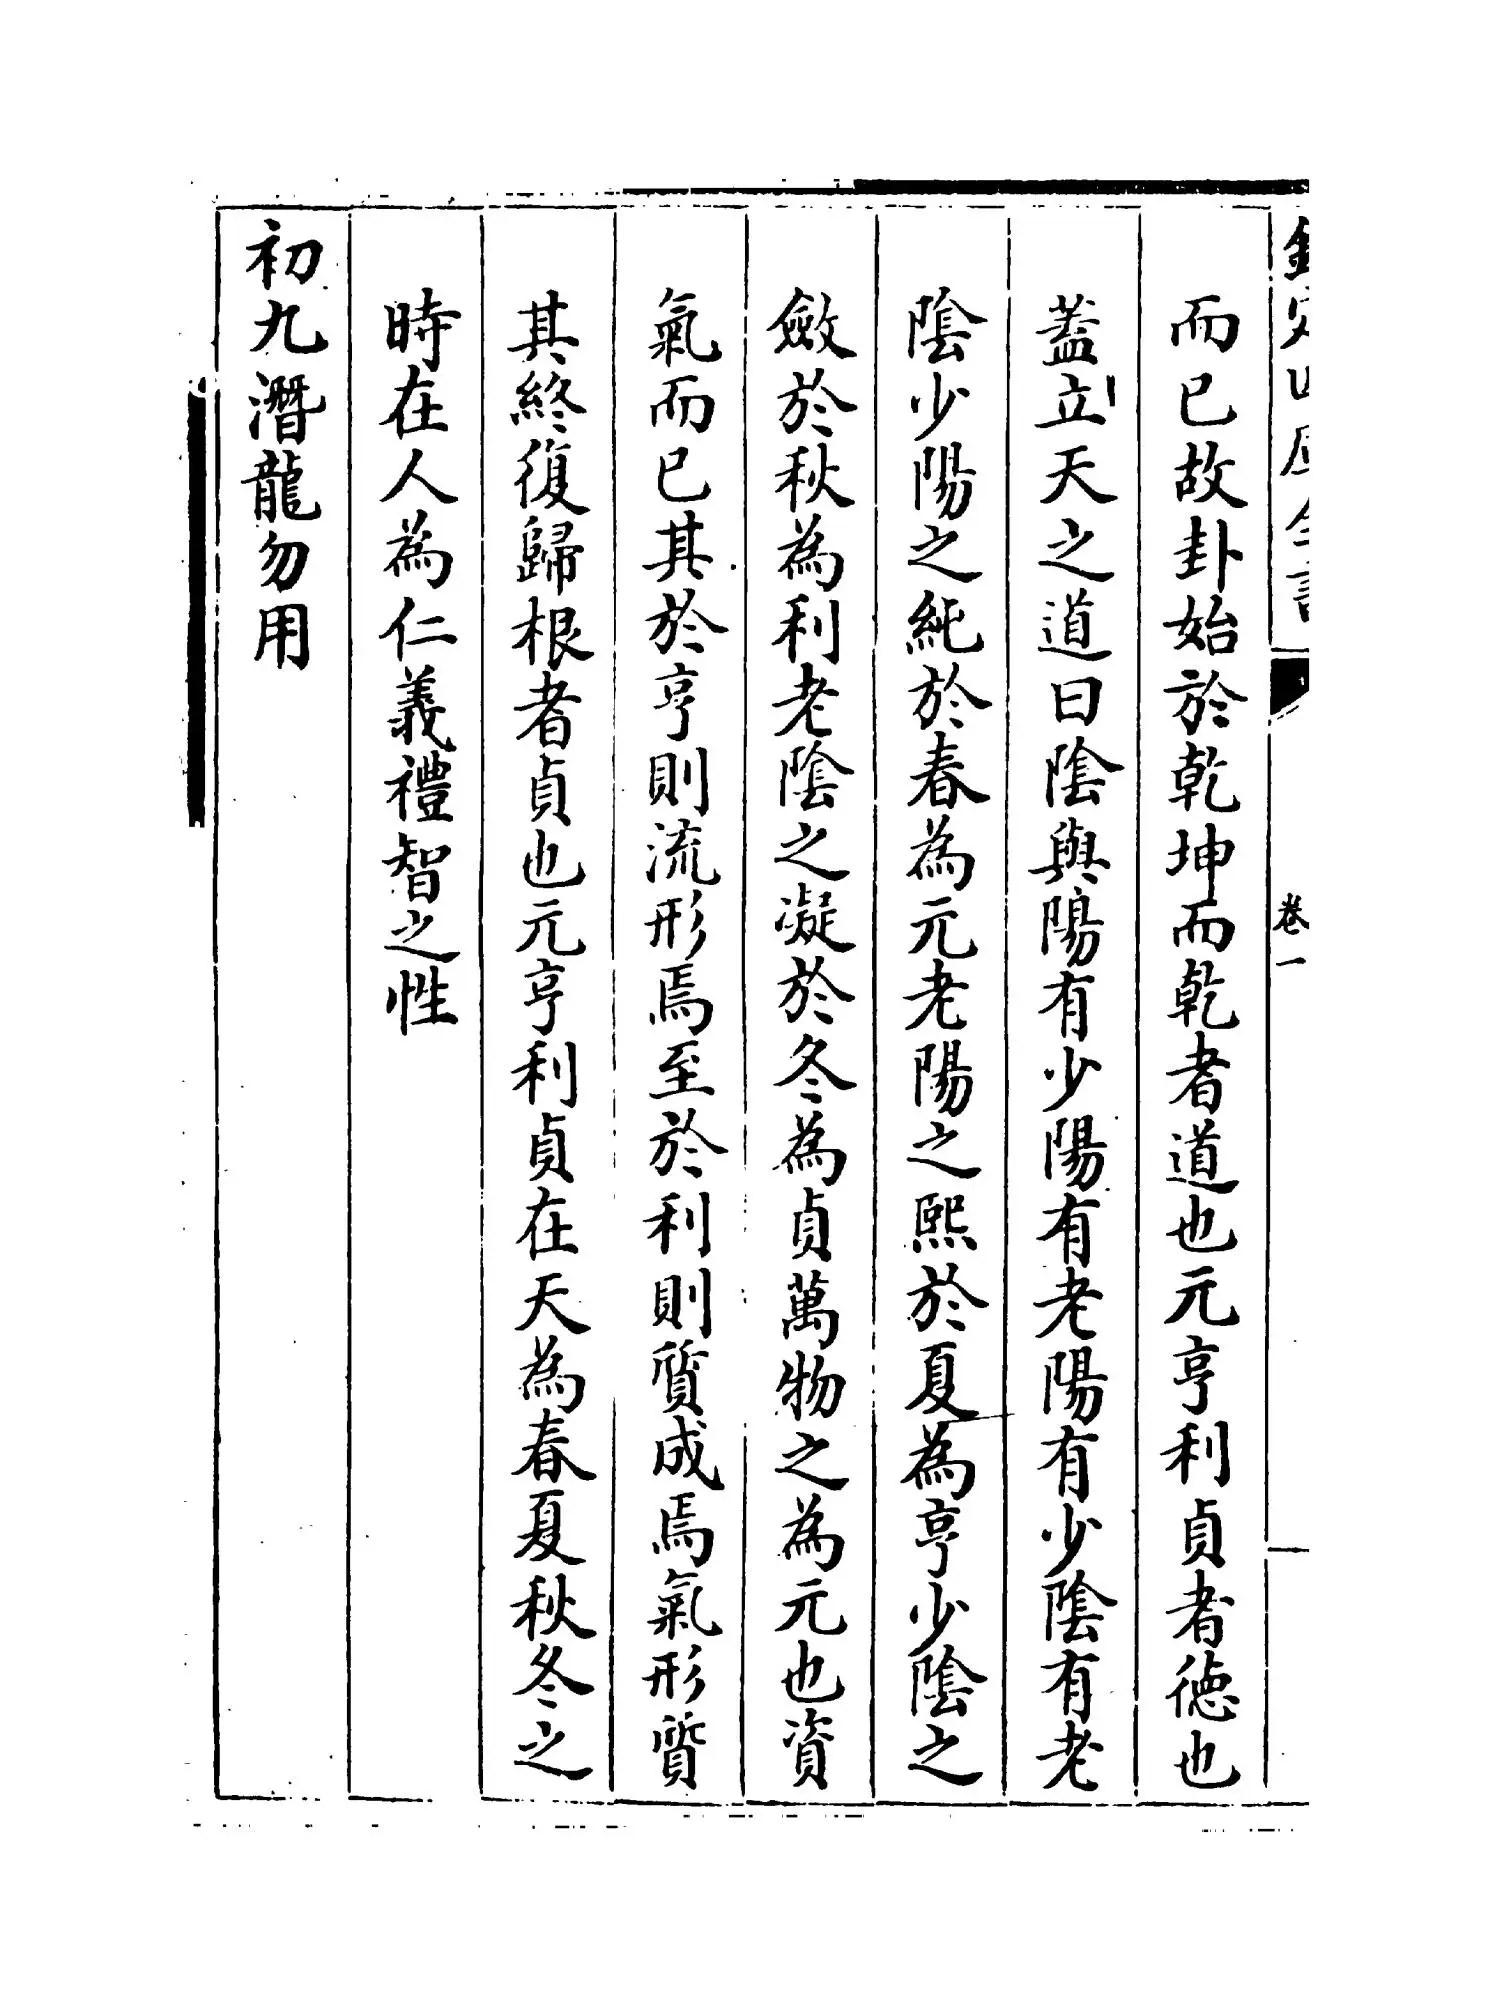 欽定四庫全書
卷一
而已故卦始於乾坤而乾者道也元亨利貞者德也
蓋立天之道曰陰與陽有少陽有老陽有少陰有老
陰少陽之純於春為元老陽之熙於夏為亨少陰之
斂於秋為利老陰之凝於冬為貞萬物之為元也資
氣而已其於亨則流形焉至於利則質成焉氣形質
其終復歸根者貞也元亨利貞在天為春夏秋冬之
時在人為仁義禮智之性
初九潛龍勿用